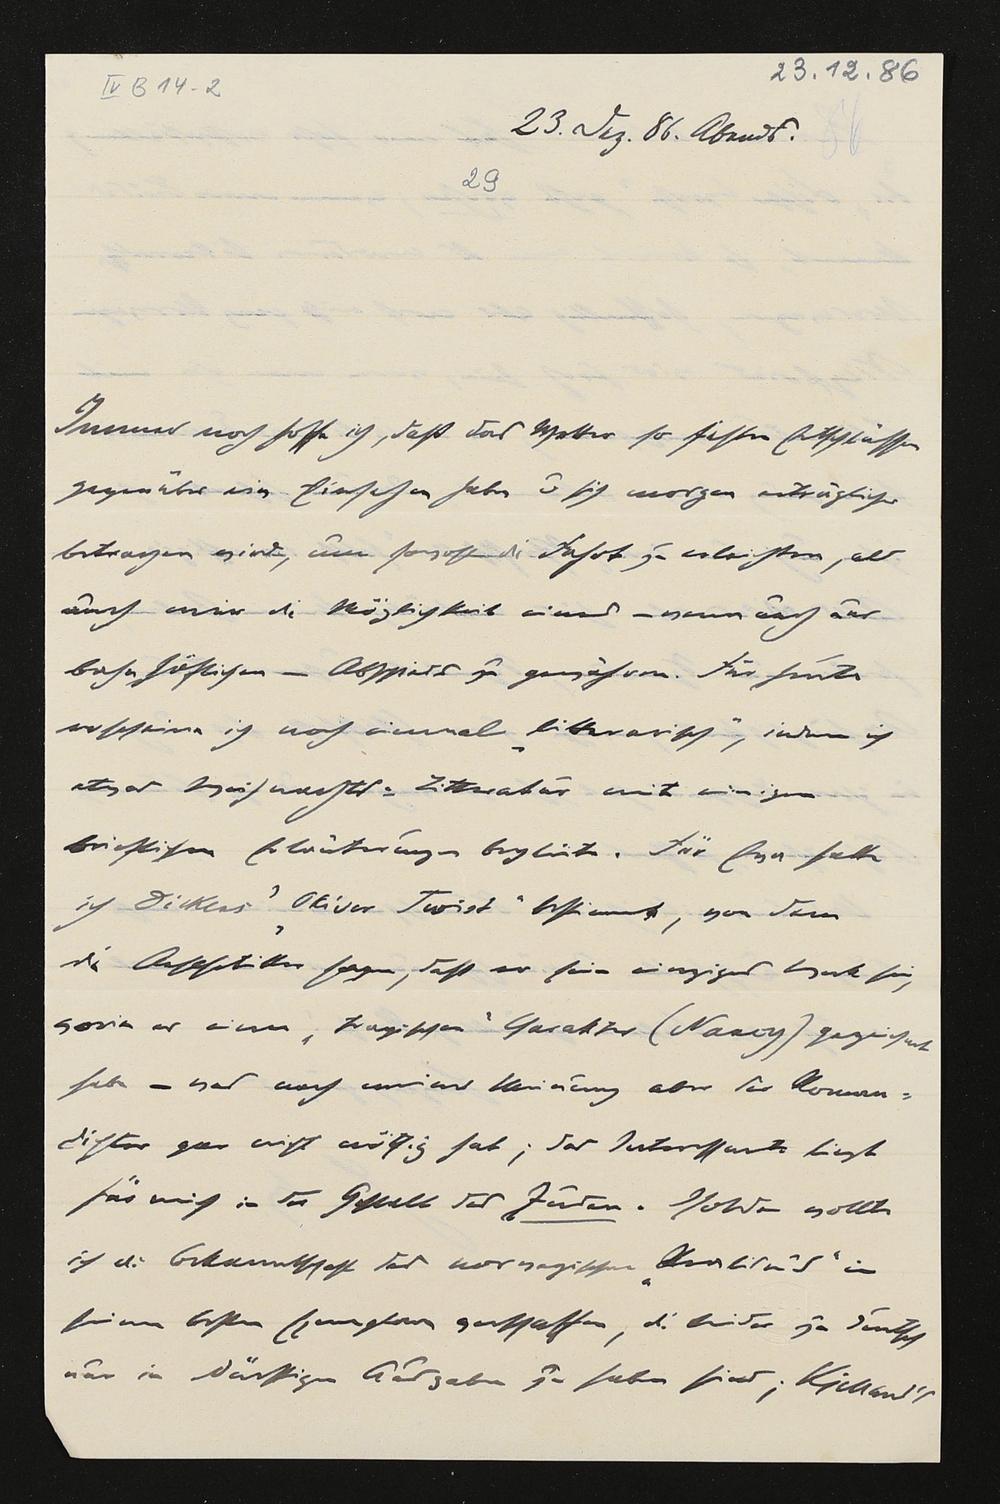 IV B 14-2
23.12.86
23. Dez. 86. Abends.
29
Immer noch hoffe ich, daß das Wetter so festen Entschlüssen
gegenüber ein Einsehen haben u sich morgen erträglicher
betragen wird, um sowohl die Fahrt zu erleichtern, als
auch mir die Möglichkeit eines – wenn auch nur
bahnhöflichen – Abschieds zu gewähren. Für heute
erscheine ich noch einmal „litterarisch", indem ich
etwas Weihnachts-Litteratur mit einigen
brieflichen Erläuterungen begleite. Für hatte
ich Dickens' „Oliver Twist" bestimmt, von dem
die Aesthetiker sagen, daß er sein einziges Werk sei,
worin er einen „tragischen" Charakter (Nancy) gezeichnet
habe – was nach meiner Meinung aber der Roman-
dichter gar nicht nöthig hat; das Interessante liegt
für mich in der Gestalt des Juden. Isolde wollte
ich die Bekanntschaft des norwegischen „Realismus" in
seinen besten Exemplaren verschaffen, die leider zu deutsch
nur in dürftigen Ausgaben zu haben sind; Kjelland's